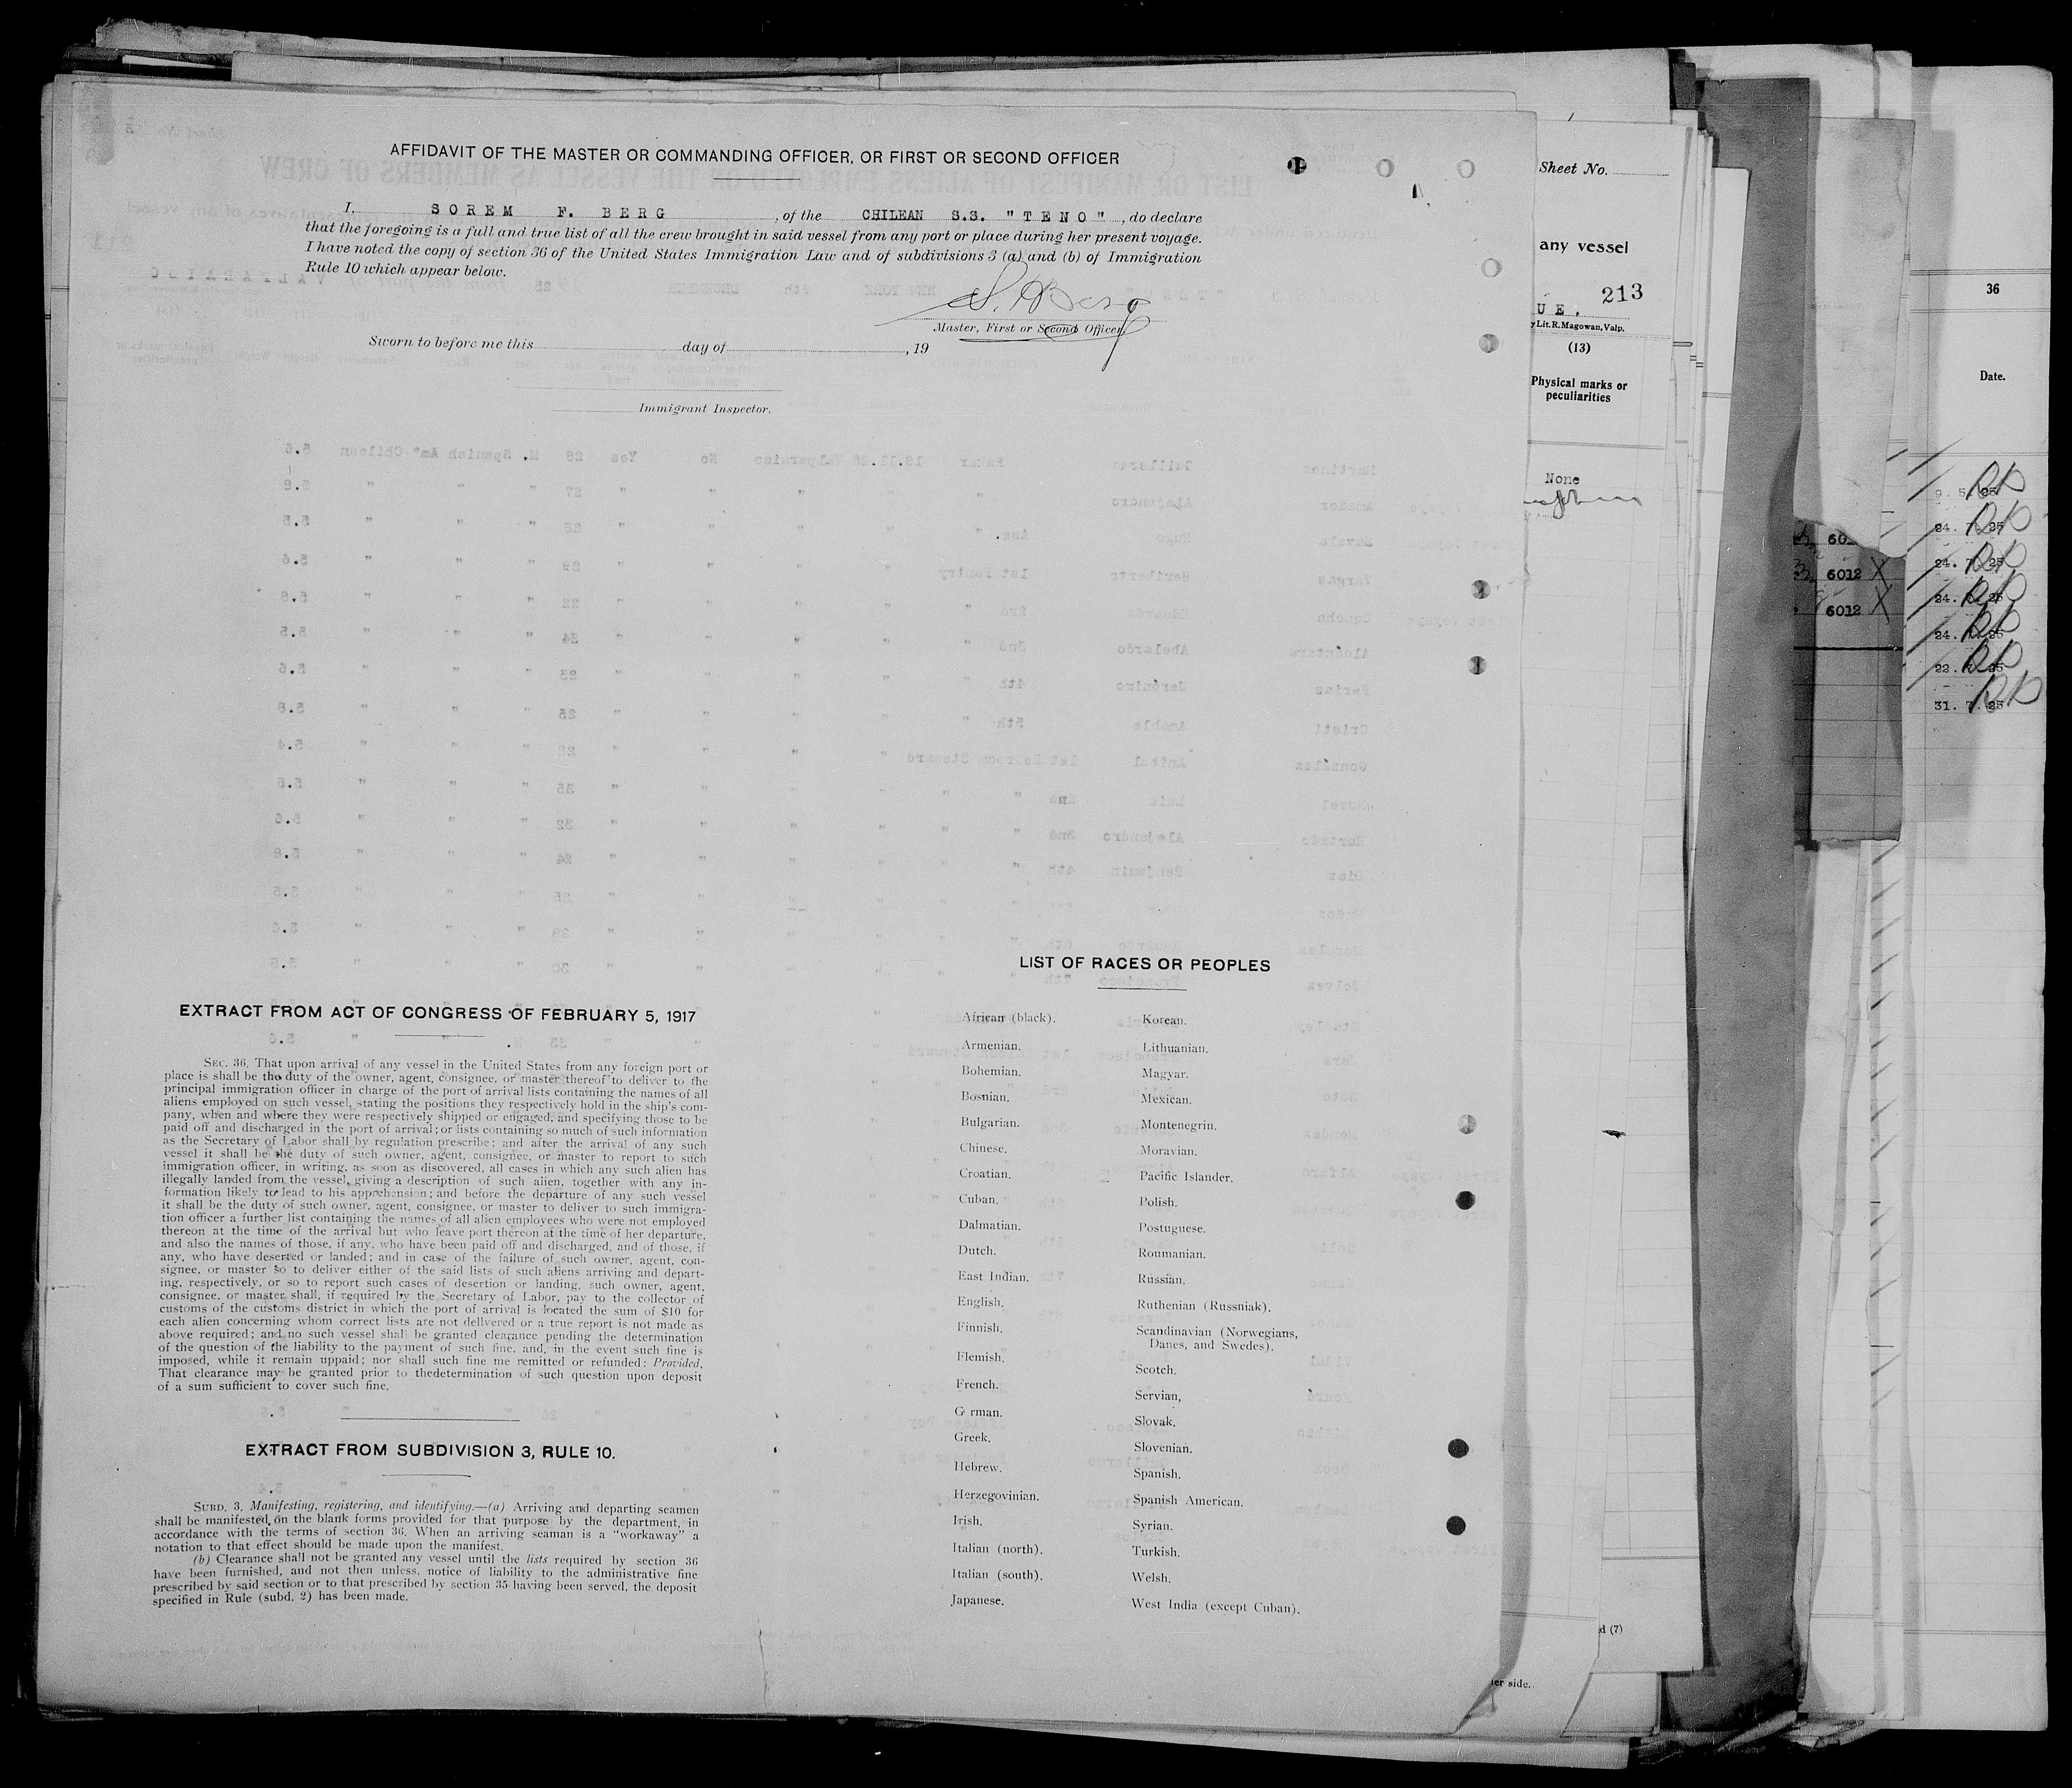 AFFIDAVIT OF THE MASTER OR COMMANDING OFFICER, OR FIRST OR SECOND OFFICER
I, SOREM F. BERG, of the CHILEAN S.S. "TENO", do declare
that the foregoing is a full and true list of all the crew brought in said vessel from any port or place during her present voyage.
I have noted the copy of section 36 of the United States Immigration Law and of subdivisions 3 (a) and (b) of Immigration
Rule 10 which appear below.
S. F. Berg
Master, First or Second Officer.
Sworn to before me this day of , 19
Immigrant Inspector.
EXTRACT FROM ACT OF CONGRESS OF FEBRUARY 5, 1917
SEC. 36. That upon arrival of any vessel in the United States from any foreign port or
place is shall be the duty of the owner, agent, consignee, or master thereof to deliver to the
principal immigration officer in charge of the port of arrival lists containing the names of all
aliens employed on such vessel, stating the positions they respectively hold in the ship's com-
pany, when and where they were respectively shipped or engaged, and specifying those to be
paid off and discharged in the port of arrival; or lists containing so much of such information
as the Secretary of Labor shall by regulation prescribe; and after the arrival of any such
vessel it shall be the duty of such owner, agent, consignee, or master to report to such
immigration officer, in writing, as soon as discovered, all cases in which any such alien has
illegally landed from the vessel, giving a description of such alien, together with any in-
formation likely to lead to his apprehension; and before the departure of any such vessel
it shall be the duty of such owner, agent, consignee, or master to deliver to such immigra-
tion officer a further list containing the names of all alien employees who were not employed
thereon at the time of the arrival but who leave port thereon at the time of her departure,
and also the names of those, if any, who have been paid off and discharged, and of those, if
any, who have deserted or landed; and in case of the failure of such owner, agent, con-
signee, or master so to deliver either of the said lists of such aliens arriving and depart-
ing, respectively, or so to report such cases of desertion or landing, such owner, agent,
consignee, or master shall, if required by the Secretary of Labor, pay to the collector of
customs of the customs district in which the port of arrival is located the sum of $10 for
each alien concerning whom correct lists are not delivered or a true report is not made as
above required; and no such vessel shall be granted clearance pending the determination
of the question of the liability to the payment of such fine, and, in the event such fine is
imposed, while it remain uppaid; nor shall such fine me remitted or refunded: Provided,
That clearance may be granted prior to thedetermination of such question upon deposit
of a sum sufficient to cover such fine.
EXTRACT FROM SUBDIVISION 3, RULE 10.
SUBD. 3. Manifesting, registering, and identifying.—(a) Arriving and departing seamen
shall be manifested on the blank forms provided for that purpose by the department, in
accordance with the terms of section 36. When an arriving seaman is a "workaway" a
notation to that effect should be made upon the manifest.
(b) Clearance shall not be granted any vessel until the lists required by section 36
have been furnished, and not then unless, notice of liability to the administrative fine
prescribed by said section or to that prescribed by section 35 having been served, the deposit
specified in Rule (subd. 2) has been made.
LIST OF RACES OR PEOPLES
African (black).
Armenian.
Bohemian.
Bosnian.
Bulgarian.
Chinese.
Croatian.
Cuban.
Dalmatian.
Dutch.
East Indian.
English.
Finnish.
Flemish.
French.
G rman.
Greek.
Hebrew.
Herzegovinian.
Irish.
Italian (north).
Italian (south).
Japanese.
Korean.
Lithuanian.
Magyar.
Mexican.
Montenegrin.
Moravian.
Pacific Islander.
Polish.
Postuguese.
Roumanian.
Russian.
Ruthenian (Russniak).
Scandinavian (Norwegians,
Danes, and Swedes).
Scotch.
Servian,
Slovak.
Slovenian.
Spanish.
Spanish American.
Syrian.
Turkish.
Welsh.
West India (except Cuban).
Sheet No.
any vessel
213
UE.
y Lit. R. Magowan, Valp.
(13)
Physical marks or
peculiarities
None
d (7)
er side.
6012 X
6012 X
36
Date.
24. 7. 25
24. 7. 25
24. 7. 25
24. 7. 25
22. 7. 25
31. 7. 25